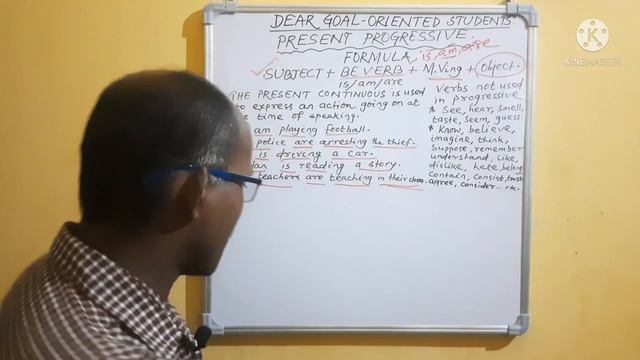 DEAR GOAL-ORIENTED STUDENTS
PRESENT PROGRESSIVE.
FORMULA is, am, are
SUBJECT + BE VERB + M.Ving + Object.
is/am/are
THE PRESENT CONTINUOUS is used
to express an action, going on at
time of speaking.
am playing football.
police are arresting the thief.
is driving a car.
is reading a story.
teachers are teaching in their class.
Verbs not used
in progressive
* See, hear, smell,
taste, seem, guess.
* Know, believe,
imagine, think,
suppose, remember
understand, like,
dislike, hate, belong
contain, consist, trust
agree, consider... etc.
K
KINEMASTER